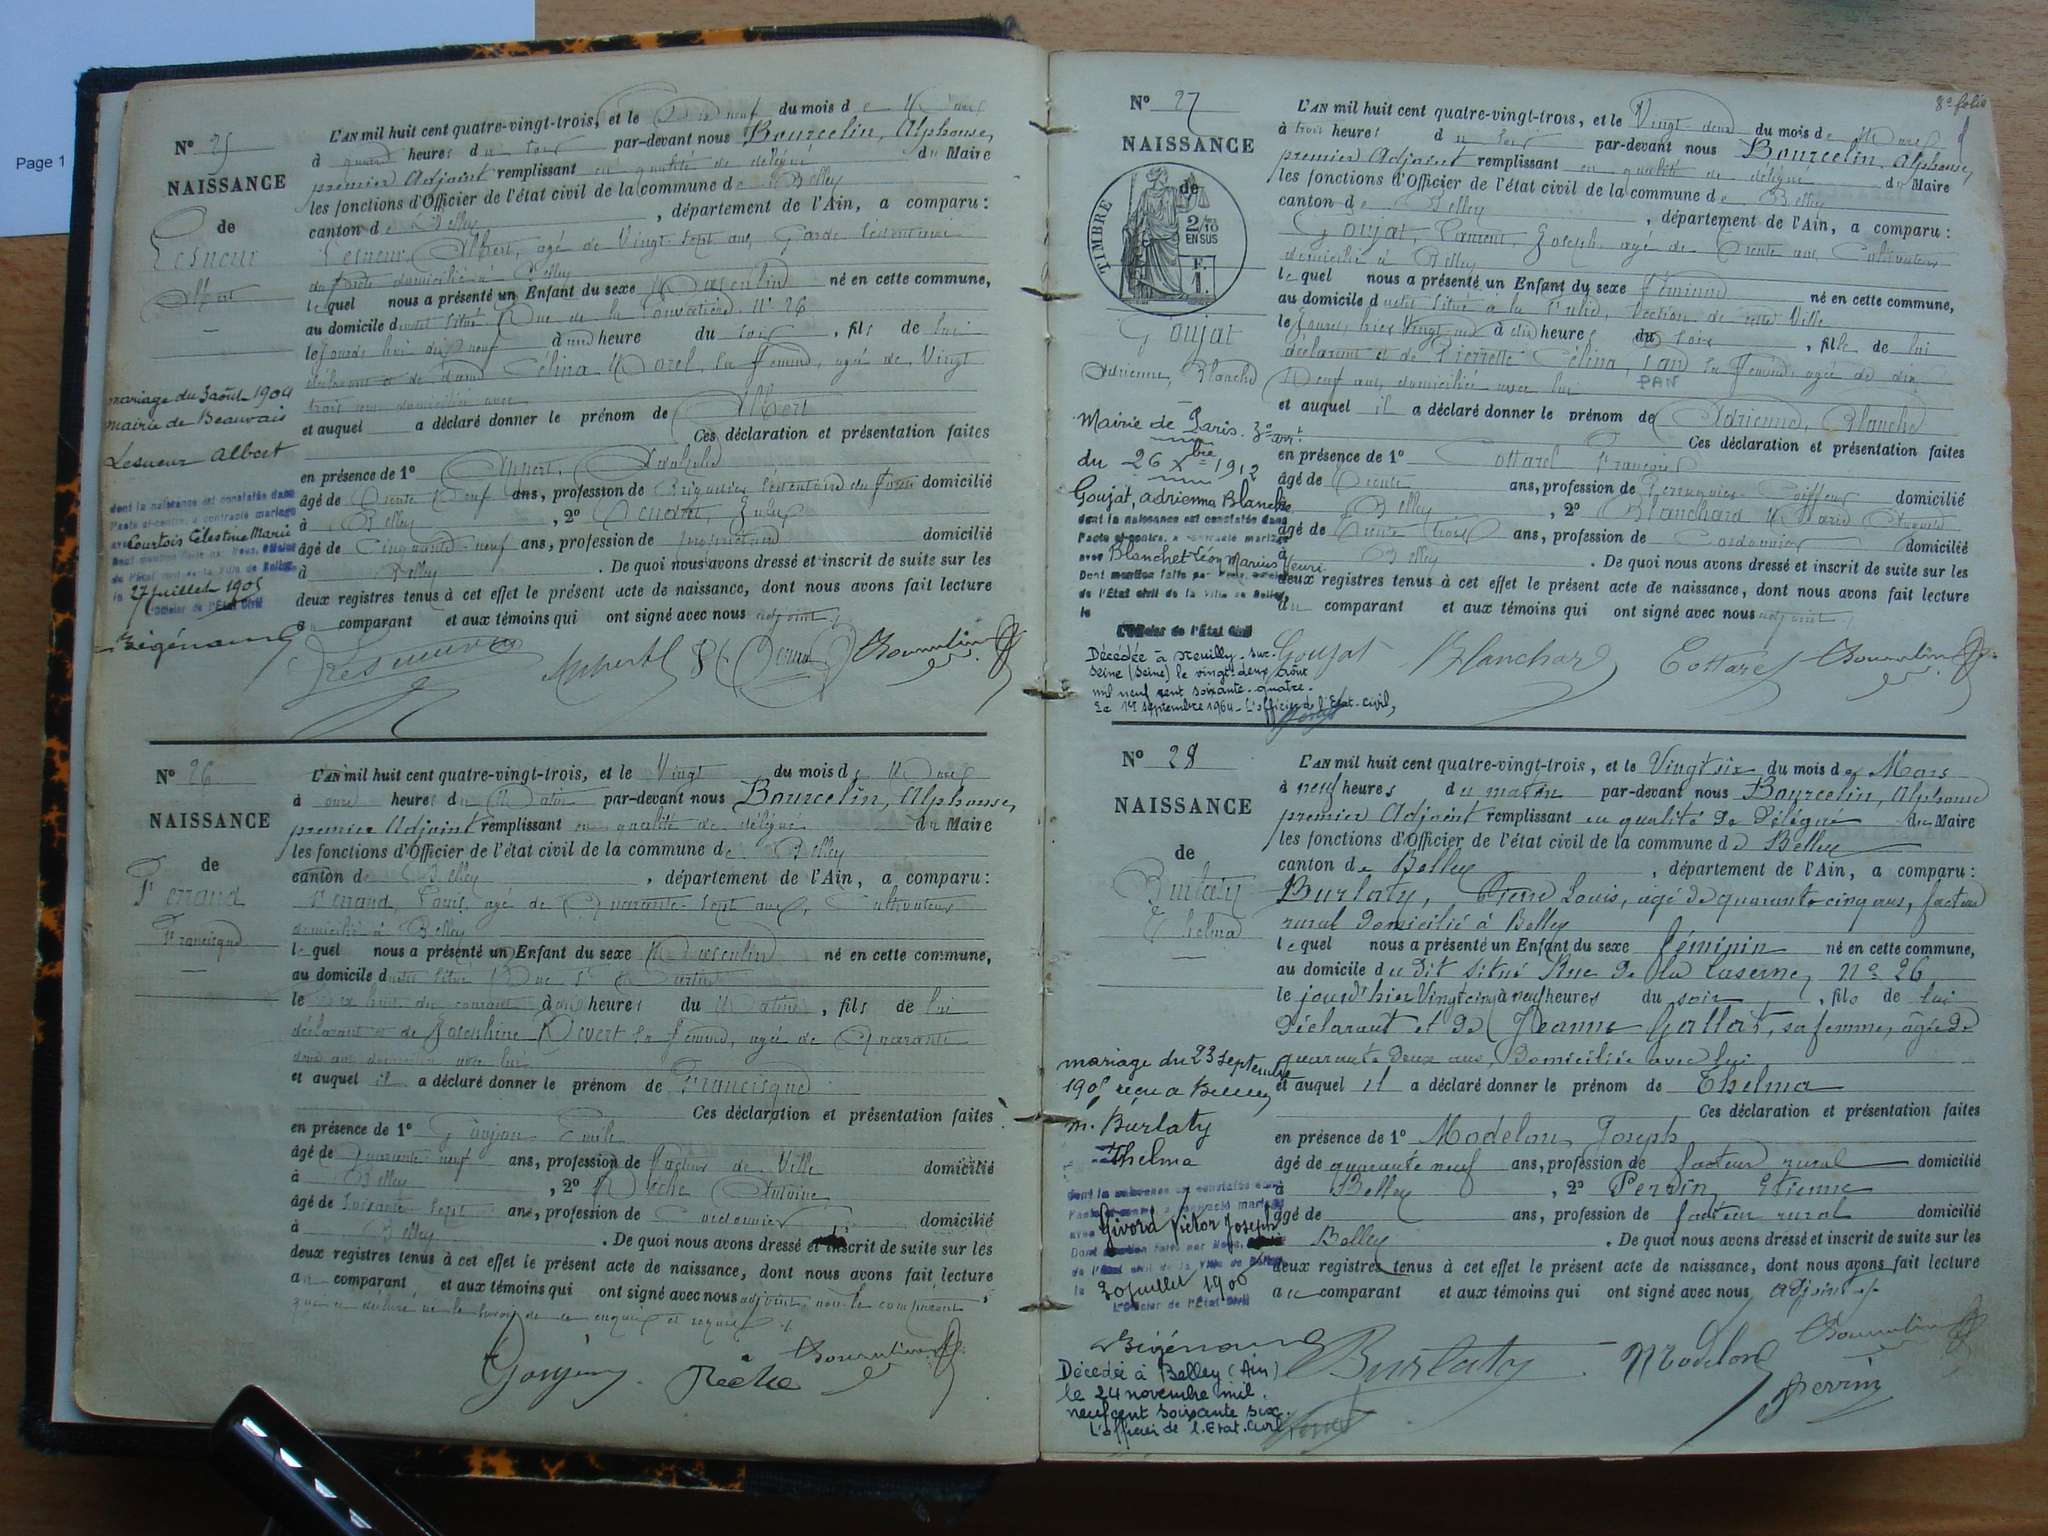 Page 1
N° 25
NAISSANCE
de
Lesueur
Albert
L'AN mil huit cent quatre-vingt-trois, et le Dix neuf du mois de Mars
à quatre heures du soir par-devant nous Bourcelin, Alphonse,
premier Adjoint remplissant en qualité de délégué du Maire
les fonctions d'Officier de l'état civil de la commune de Belley
canton de Belley, département de l'Ain, a comparu:
Lesueur Albert, agé de Vingt-sept ans, Garde
domicilié à Belley
lequel nous a présenté un Enfant du sexe Masculin né en cette commune,
au domicile situé Rue de la N° 26
le jourde hui dix neuf à une heure du soir, fils de lui
déclarant et de Célina Morel, sa femme, agée de Vingt
trois ans domiciliée avec
et auquel a déclaré donner le prénom de Albert
Ces déclaration et présentation faites
en présence de 1° Appert,
âgé de Trente Neuf ans, profession de Brigadier domicilié
à Belley, 2° Jules
âgé de Cinquante-neuf ans, profession de domicilié
à Belley. De quoi nous avons dressé et inscrit de suite sur les
deux registres tenus à cet effet le présent acte de naissance, dont nous avons fait lecture
au comparant et aux témoins qui ont signé avec nous adjoint
mariage du 3 août 1904
mairie de Beauvais
Lesueur Albert
dont la naissance est constatée dans
l'acte ci-contre, a contracté mariage
avec Courtois Célestine Marie
Dont mention faite par Nous, officier
de l'État civil de la Ville de Belley
le 27 juillet 1905
L'Officier de l'État Civil
Lesueur Appert Bourcelin
N° 26
NAISSANCE
de
Ferrand
Francisque
L'AN mil huit cent quatre-vingt-trois, et le Vingt du mois de Mars
à onze heures du Matin par-devant nous Bourcelin, Alphonse,
premier Adjoint remplissant en qualité de délégué du Maire
les fonctions d'Officier de l'état civil de la commune de Belley
canton de Belley, département de l'Ain, a comparu:
Ferrand, Louis, agé de Quarante-sept ans, Cultivateur
domicilié à Belley
lequel nous a présenté un Enfant du sexe Masculin né en cette commune,
au domicile situé Rue St Martin
le dix huit du courant à heures du Matin, fils de lui
déclarant et de Joséphine sa femme, agée de Quarante
deux ans domiciliée avec lui
et auquel il a déclaré donner le prénom de Francisque
Ces déclaration et présentation faites
en présence de 1° Goujon Emile
âgé de Quarante neuf ans, profession de facteur de Ville domicilié
à Belley, 2° Reche Antoine
âgé de Soixante sept ans, profession de Cordonnier domicilié
à Belley. De quoi nous avons dressé et inscrit de suite sur les
deux registres tenus à cet effet le présent acte de naissance, dont nous avons fait lecture
au comparant et aux témoins qui ont signé avec nous adjoint, non le comparant
qui a déclaré ne le savoir de ce enquis et requis
Goujon Reche Bourcelin
8e folio
N° 27
NAISSANCE
de
TIMBRE
2/10
EN SUS
F.
1.
Goujat
Adrienne, Blanche
L'AN mil huit cent quatre-vingt-trois, et le Vingt-deux du mois de Mars
à trois heures du soir par-devant nous Bourcelin, Alphonse,
premier Adjoint remplissant en qualité de délégué du Maire
les fonctions d'Officier de l'état civil de la commune de Belley
canton de Belley, département de l'Ain, a comparu:
Goujat, Laurent, Joseph, agé de Trente ans, Cultivateur
domicilié à Belley
lequel nous a présenté un Enfant du sexe féminin né en cette commune,
au domicile situé à section de cette Ville
le jourde hier Vingt-un à dix heures du soir, fille de lui
déclarant et de Pierrette Célina, Pan sa femme, agée de dix
PAN
Neuf ans, domiciliée avec lui
et auquel il a déclaré donner le prénom de Adrienne, Blanche
Ces déclaration et présentation faites
en présence de 1° Cottarel François
âgé de Trente ans, profession de Perruquier Coiffeur domicilié
à Belley, 2° Blanchard Marie
âgé de Trente trois ans, profession de Cordonnier domicilié
à Belley. De quoi nous avons dressé et inscrit de suite sur les
deux registres tenus à cet effet le présent acte de naissance, dont nous avons fait lecture
au comparant et aux témoins qui ont signé avec nous adjoint
Mairie de Paris. 3e arrt
du 26 Xbre 1912
Goujat, adrienne Blanche
dont la naissance est constatée dans
l'acte ci-contre, a contracté mariage
avec Blanchet Léon Marius Henri
Dont mention faite par Nous, officier
de l'État civil de la Ville de Belley,
le
L'Officier de l'État Civil
Décédée à Neuilly-sur-
Seine (Seine) le vingt-deux août
mil neuf cent soixante-quatre.
Le 1er septembre 1964 - L'officier de l'Etat-civil,
Goujat Blanchard Cottarel Bourcelin
N° 28
NAISSANCE
de
Burlaty
Thelma
L'AN mil huit cent quatre-vingt-trois, et le Vingt six du mois de Mars
à neuf heures du matin par-devant nous Bourcelin, Alphonse
premier Adjoint remplissant en qualité de Délégué du Maire
les fonctions d'Officier de l'état civil de la commune de Belley
canton de Belley, département de l'Ain, a comparu:
Burlaty, Pierre Louis, agé de quarante cinq ans, facteur
rural domicilié à Belley
lequel nous a présenté un Enfant du sexe féminin né en cette commune,
au domicile du dit situé Rue de la Caserne, n° 26
le jourd'hier Vingt cinq à neuf heures du soir, fils de lui
Déclarant et de Jeanne Gallat, sa femme, agée de
quarante deux ans, domiciliée avec lui
et auquel il a déclaré donner le prénom de Thelma
Ces déclaration et présentation faites
en présence de 1° Modelon Joseph
âgé de quarante neuf ans, profession de facteur rural domicilié
à Belley, 2° Perrin Etienne
âgé de ans, profession de facteur rural domicilié
à Belley. De quoi nous avons dressé et inscrit de suite sur les
deux registres tenus à cet effet le présent acte de naissance, dont nous avons fait lecture
au comparant et aux témoins qui ont signé avec nous adjoint
mariage du 23 septembre
190 reçu a Belley
Burlaty
Thelma
dont la naissance est constatée dans
l'acte ci-contre, a contracté mariage
avec Givord Victor Joseph
Dont mention faite par Nous, officier
de l'État civil de la Ville de Belley
le 30 juillet 1906
L'Officier de l'État Civil
Décédée à Belley (Ain)
le 24 novembre mil
neuf cent soixante six.
L'officier de l'Etat-Civil,
Burlaty Modelon Bourcelin
Perrin